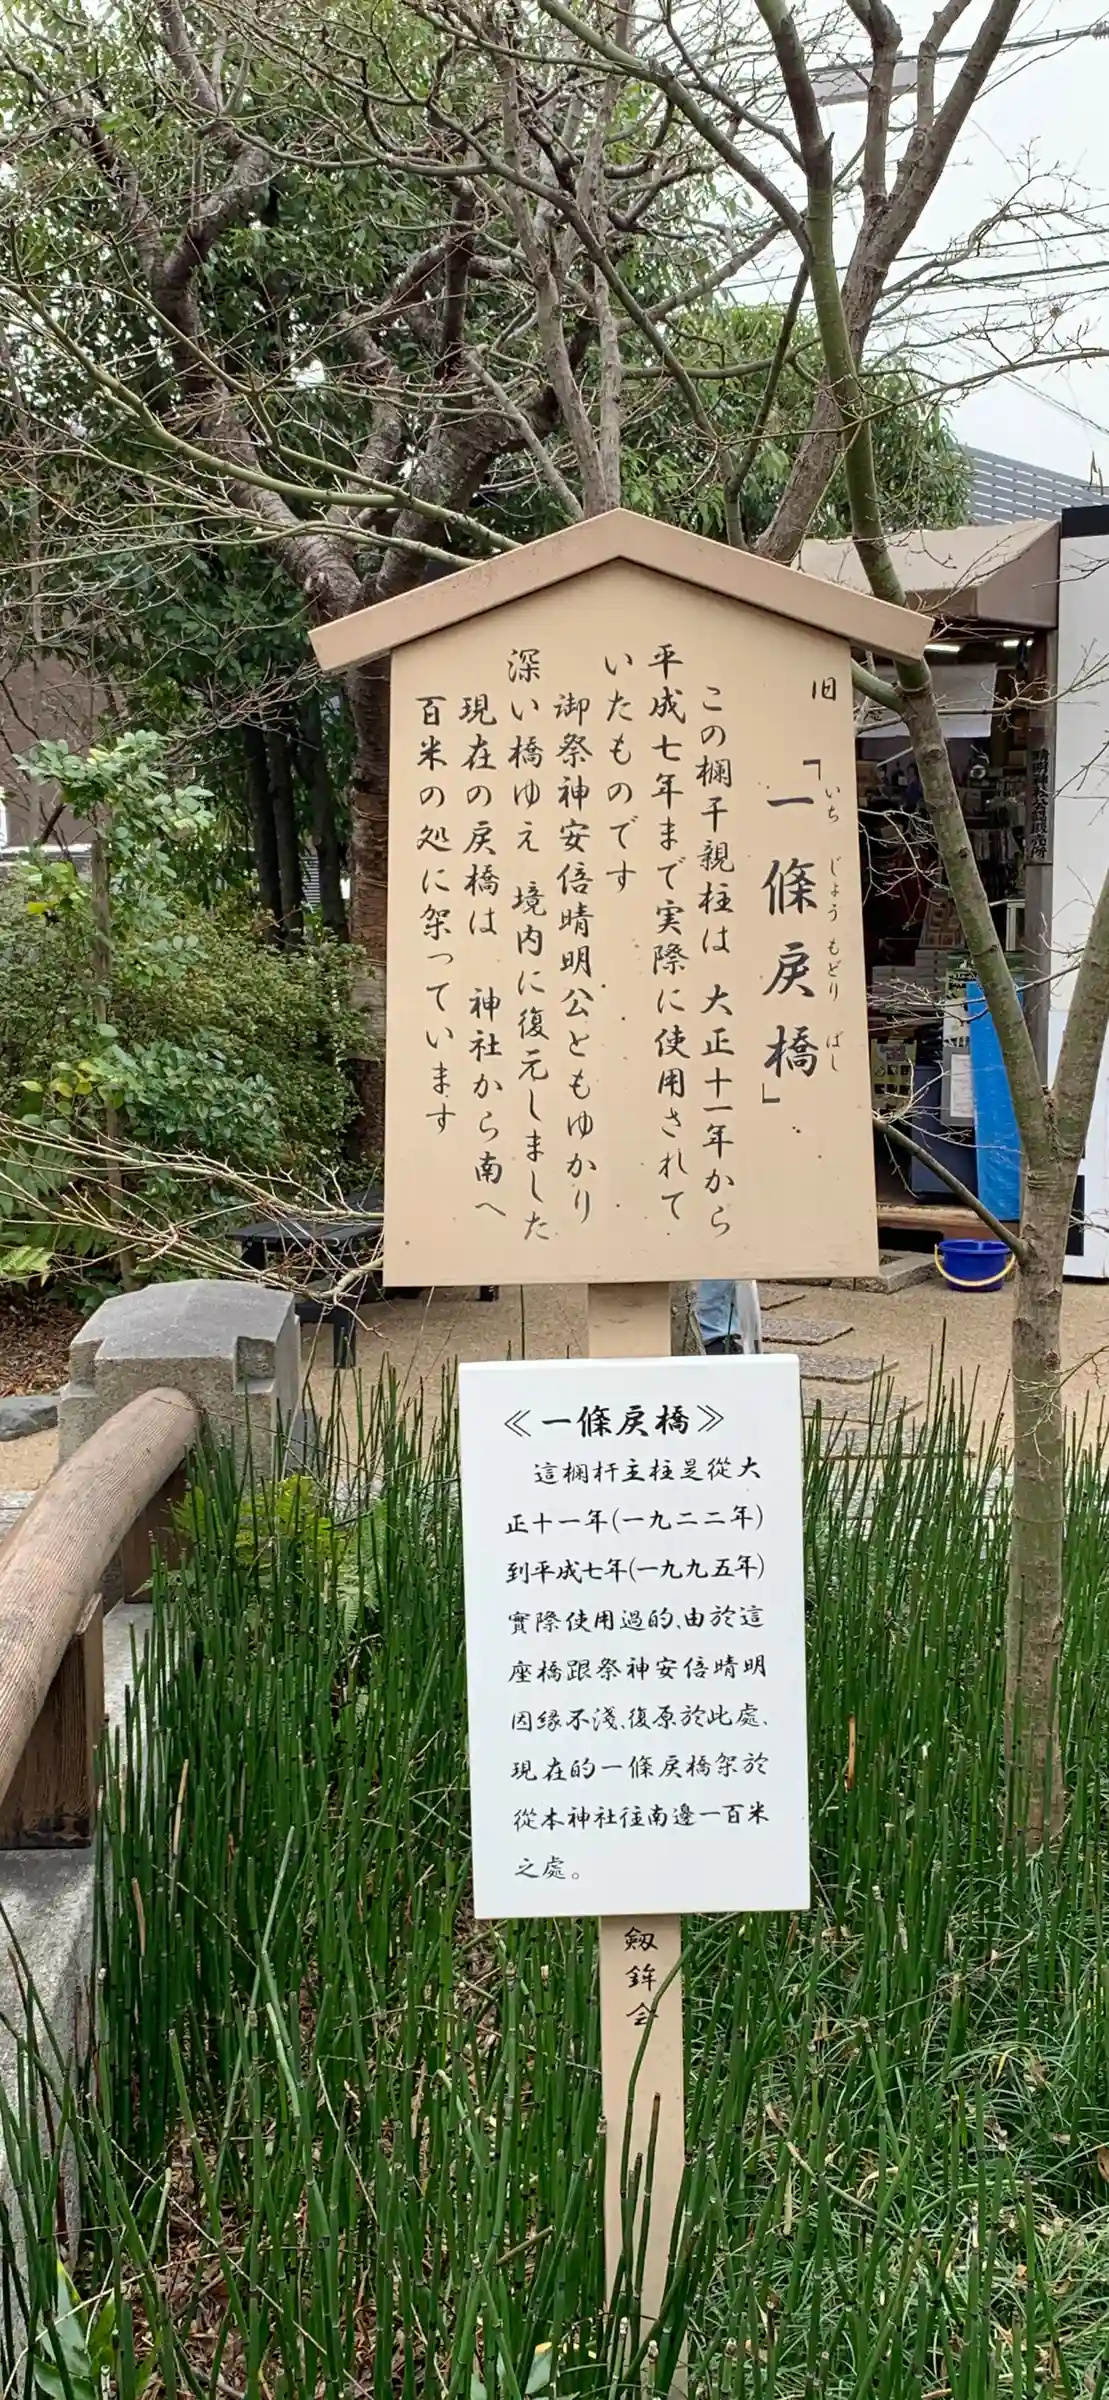 旧
「一條戻橋」
いち じょう もどり ばし
この欄干親柱は 大正十一年から
平成七年まで実際に使用されて
いたものです
御祭神安倍晴明公ともゆかり
深い橋ゆえ 境内に復元しました
現在の戻橋は 神社から南へ
百米の処に架っています
《一條戻橋》
這欄杆主柱是從大
正十一年(一九二二年)
到平成七年(一九九五年)
實際使用過的、由於這
座橋跟祭神安倍晴明
因縁不淺、復原於此處、
現在的一條戻橋架於
從本神社往南邊一百米
之處。
剱鉾会
晴明神社公認販売所